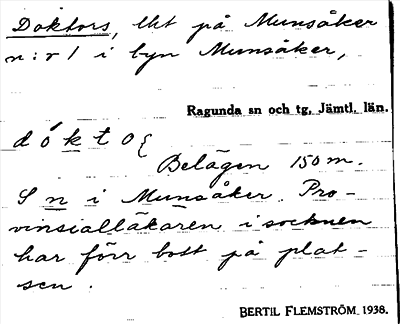 Doktors, lht på Munsåker
n:r 1 i byn Munsåker,
Ragunda sn och tg, Jämtl. län.
dóktoʃ
Belägen 150 m.
S n i Munsåker. Pro-
vinsialläkaren i socknen
har förr bott på plat-
sen.
BERTIL FLEMSTRÖM 1938.